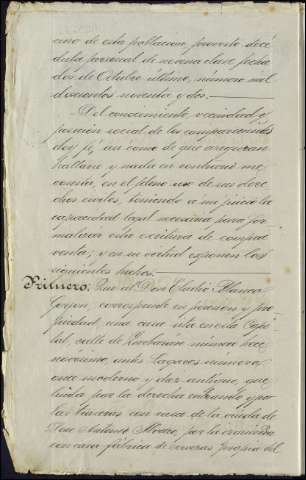 cino de esta poblacion, provisto de cé
dula personal de novena clase, fecha
dos de Octubre último, número mil
doscientos noventa y dos.
Del conocimiento, vecindad y
posición social de los comparecientes
doy fé; así como de que aseguran
hallarse y nada en contrario me
consta, en el pleno uso de sus dere
chos civiles, teniendo a mi juicio la
capacidad legal necesaria para for
malizar esta escritura de compra
venta; y en su virtud exponen los
siguientes hechos.
Primero. Que al Don Blanco
corresponde en posesion y pro
piedad una casa sita en esta Capi
tal, calle de número
antes número
once moderno y diez antiguo, que
linda por la derecha entrando y por
las traseras con casa de la viuda de
Don Antonio Alvarez, por la izquierda
con casa fábrica de cervezas propia del